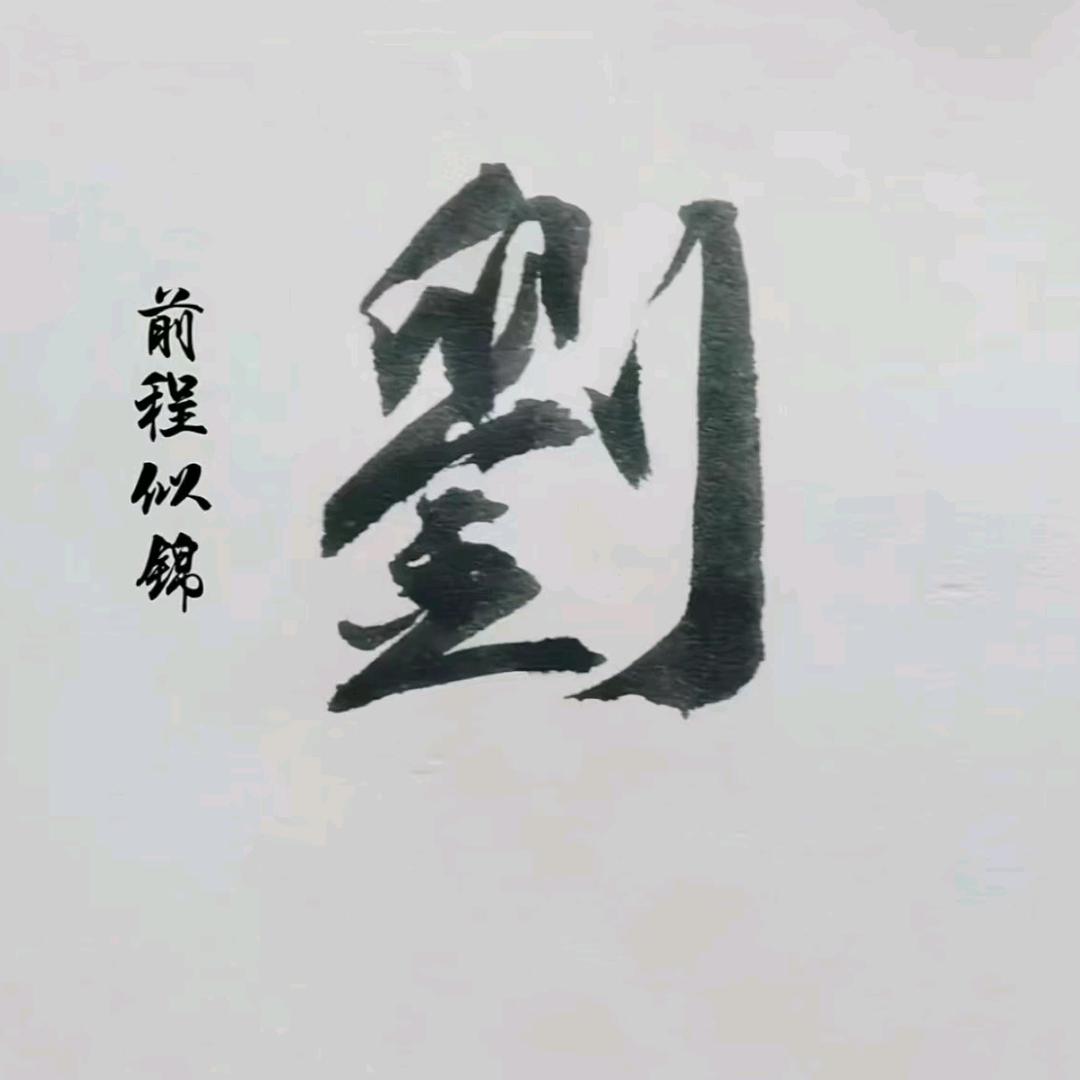 劉
前程似錦